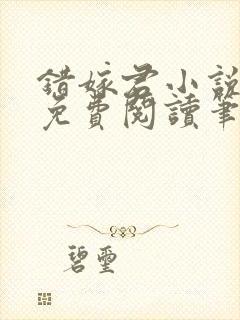 錯嫁君小說
免費閱讀筆
碧璽